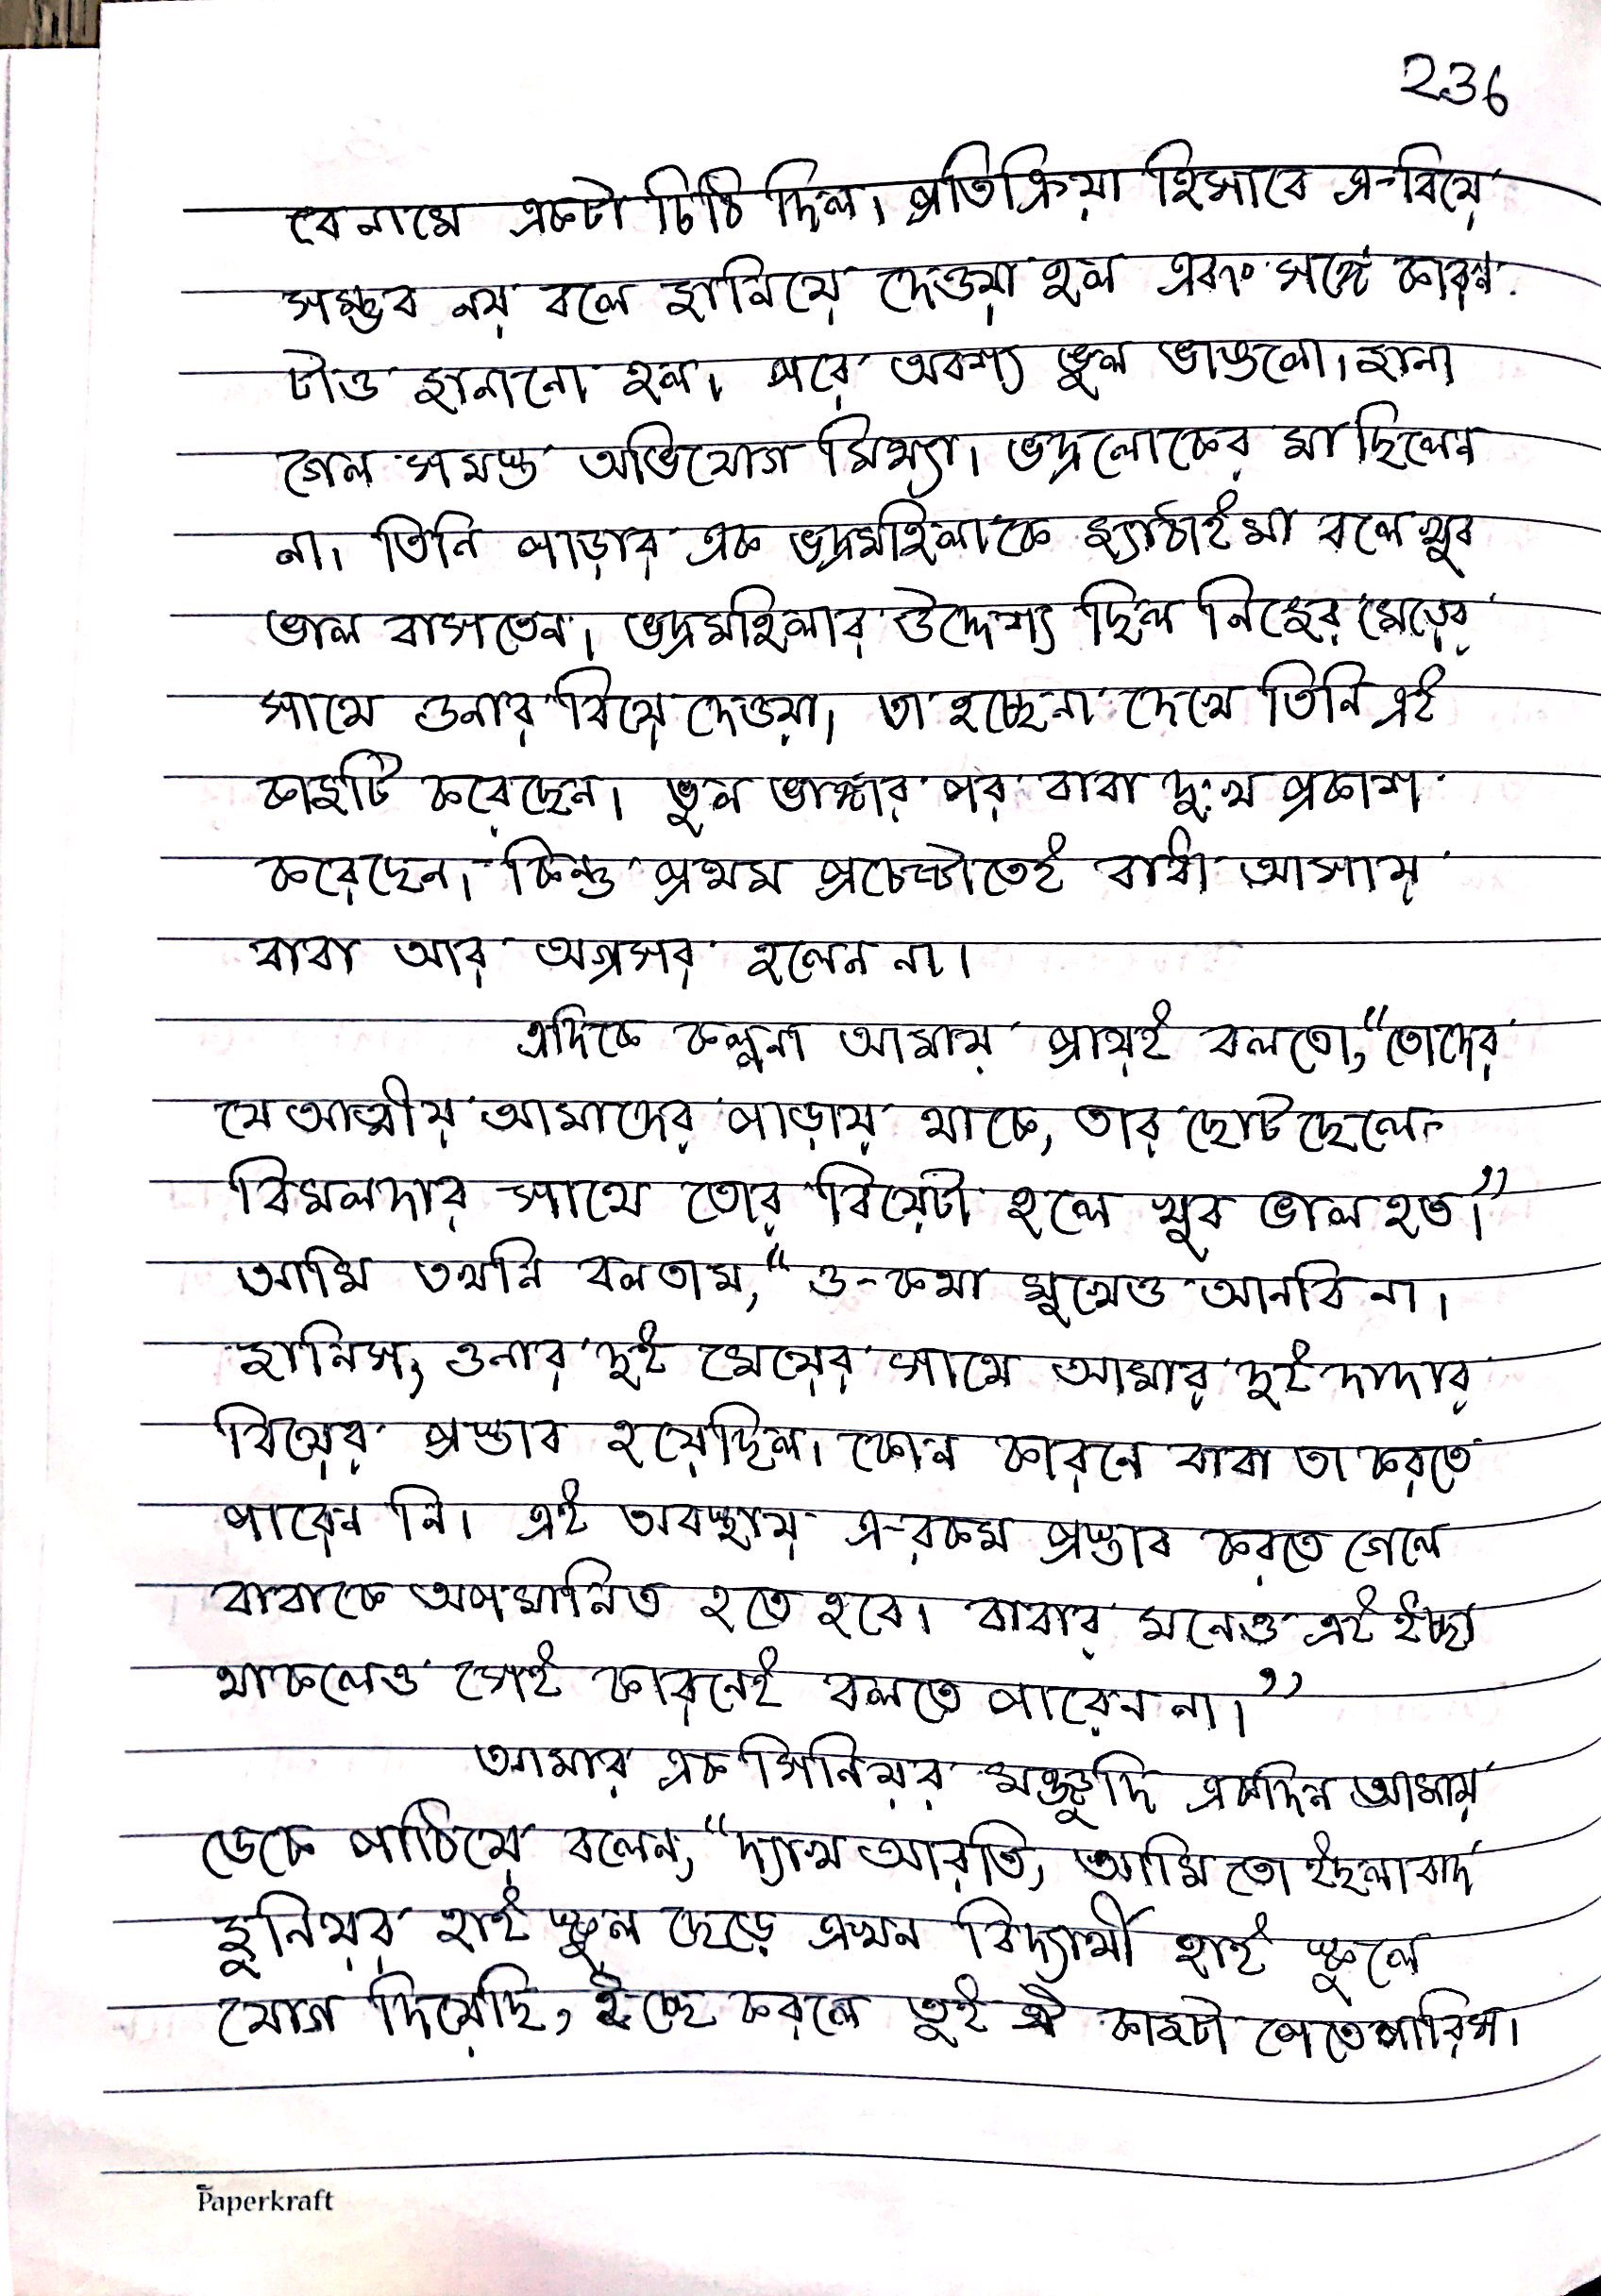 236
বেনামে একটা চিঠি দিল। প্রতিক্রিয়া হিসাবে এ-বিয়ে
সম্ভব নয় বলে জানিয়ে দেওয়া হল এবং সঙ্গে কারন
টাও জানানো হল। পরে অবশ্য ভুল ভাঙলো। জানা
গেল সমস্ত অভিযোগ মিথ্যা। ভদ্রলোকের মা ছিলেন
না। তিনি পাড়ার এক ভদ্রমহিলাকে জ্যাঠাইমা বলে খুব
ভাল বাসতেন। ভদ্রমহিলার উদ্দেশ্য ছিল নিজের মেয়ের
সাথে ওনার বিয়ে দেওয়া। তা হচ্ছেনা দেখে তিনি এই
কাজটি করেছেন। ভুল ভাঙ্গার পর বাবা দুঃখ প্রকাশ
করেছেন। কিন্তু প্রথম প্রচেষ্টাতেই বাধা আসায়
বাবা আর অগ্রসর হলেন না।
এদিকে কল্পনা আমায় প্রায়ই বলতো, “তোদের
যে আত্মীয় আমাদের পাড়ায় থাকে, তার ছোট ছেলে
বিমলদার সাথে তোর বিয়েটা হলে খুব ভাল হত।”
আমি তখনি বলতাম, “ও-কথা মুখেও আনবি না।
জানিস, ওনার দুই মেয়ের সাথে আমার দুই দাদার
বিয়ের প্রস্তাব হয়েছিল। কোন কারনে বাবা তা করতে
পারেন নি। এই অবস্থায় এ-রকম প্রস্তাব করতে গেলে
বাবাকে অপমানিত হতে হবে। বাবার মনেও এই ইচ্ছা
থাকলেও সেই কারনেই বলতে পারেন না।”
আমার এক সিনিয়র মঞ্জুদি একদিন আমায়
ডেকে পাঠিয়ে বলেন, “দ্যাখ আরতি, আমি তো ইছলাবাদ
জুনিয়র হাই স্কুল ছেড়ে এখন বিদ্যার্থী হাই স্কুলে
যোগ দিয়েছি, ইচ্ছে করলে তুই ঐ কাজটা পেতে পারিস।
Paperkraft